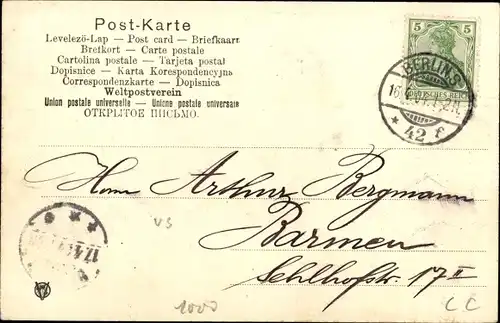 Post-Karte
Levelezö-Lap — Post card — Briefkaart
Brefkort — Carte postale
Cartolina postale — Tarjeta postal
Dopisnice — Karta Korespondencyjna
Correspondenzkarte — Dopisnica
Weltpostverein
Union postale universelle — Unione postale universale
ОТКРЫТОЕ ПИСЬМО.
5 5
DEUTSCHES REICH
BERLIN S.
* 42 f
Herrn Arthur Bergmann
Barmen
Sehlhofstr. 17 II
VS
1000
CC